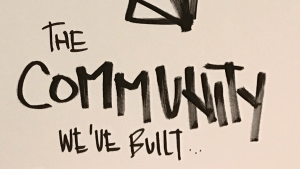 THE
COMMUNITY
WE'VE BUILT...